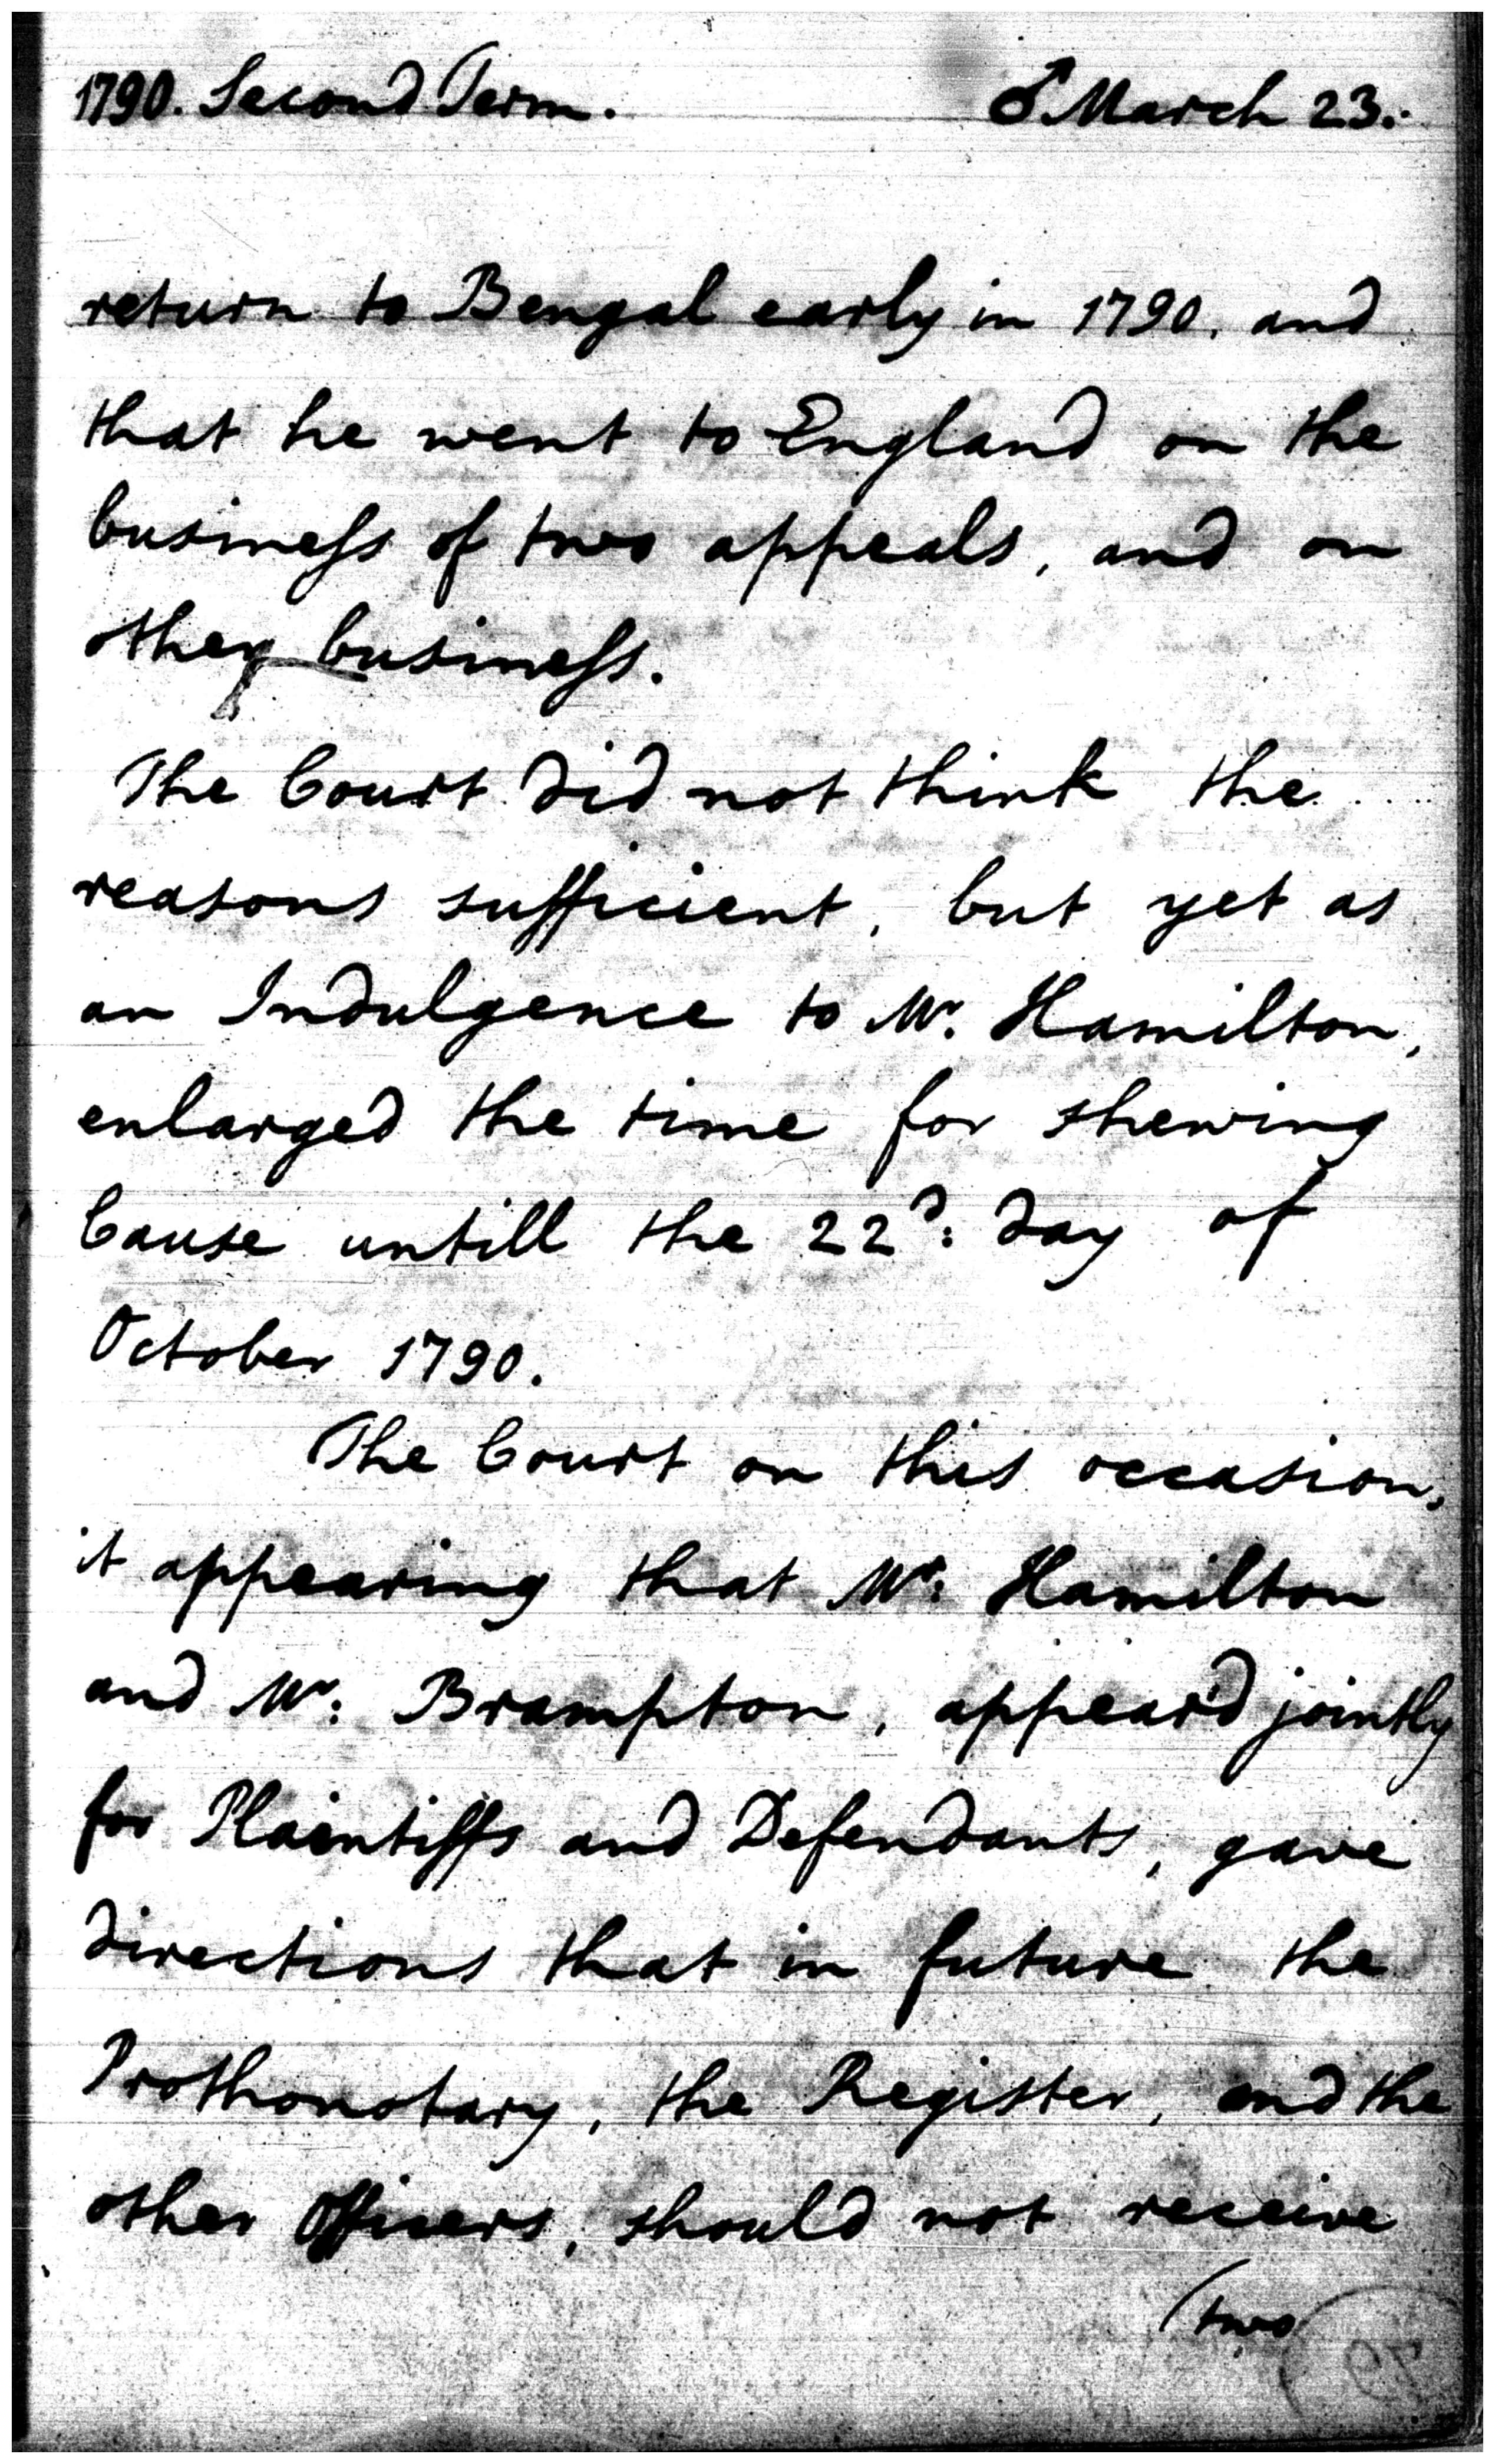 1790. Second Term. ♂ March 23.
return to Bengal early in 1790. and
that he went to England on the
business of two appeals, and on
other business.
The Court did not think the
reasons sufficient, but yet as
an Indulgence to Mr. Hamilton,
enlarged the time for shewing
Cause untill the 22d: day of
October 1790.
The Court on this occasion,
it appearing that Mr: Hamilton
and Mr: Brampton, appear'd jointly
for Plaintiffs and Defendants, gave
directions that in future the
Prothonotary, the Register, and the
other Officers, should not receive
(two